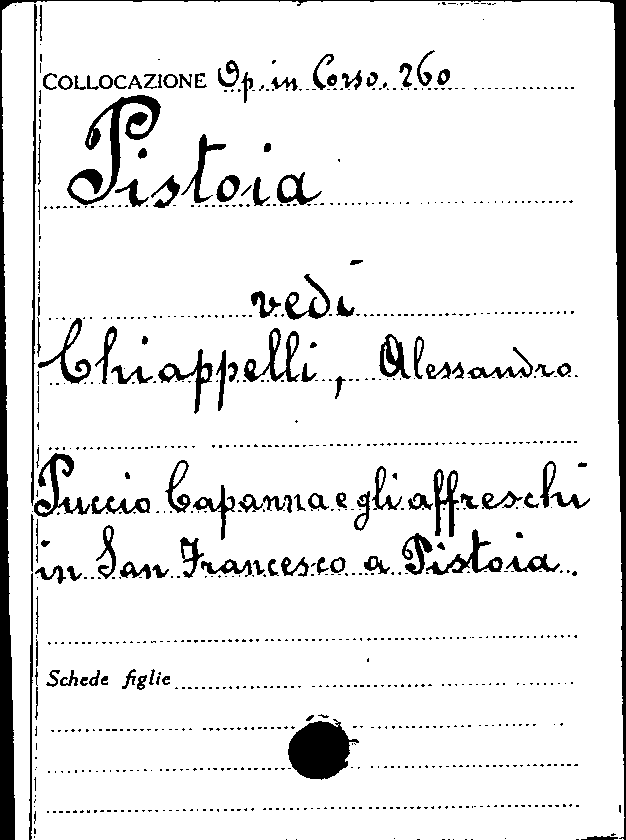 COLLOCAZIONE Op. in Corso. 260
Pistoia
vedi
Chiappelli, Alessandro
Puccio Capanna e gli affreschi
in San Francesco a Pistoia.
Schede figlie